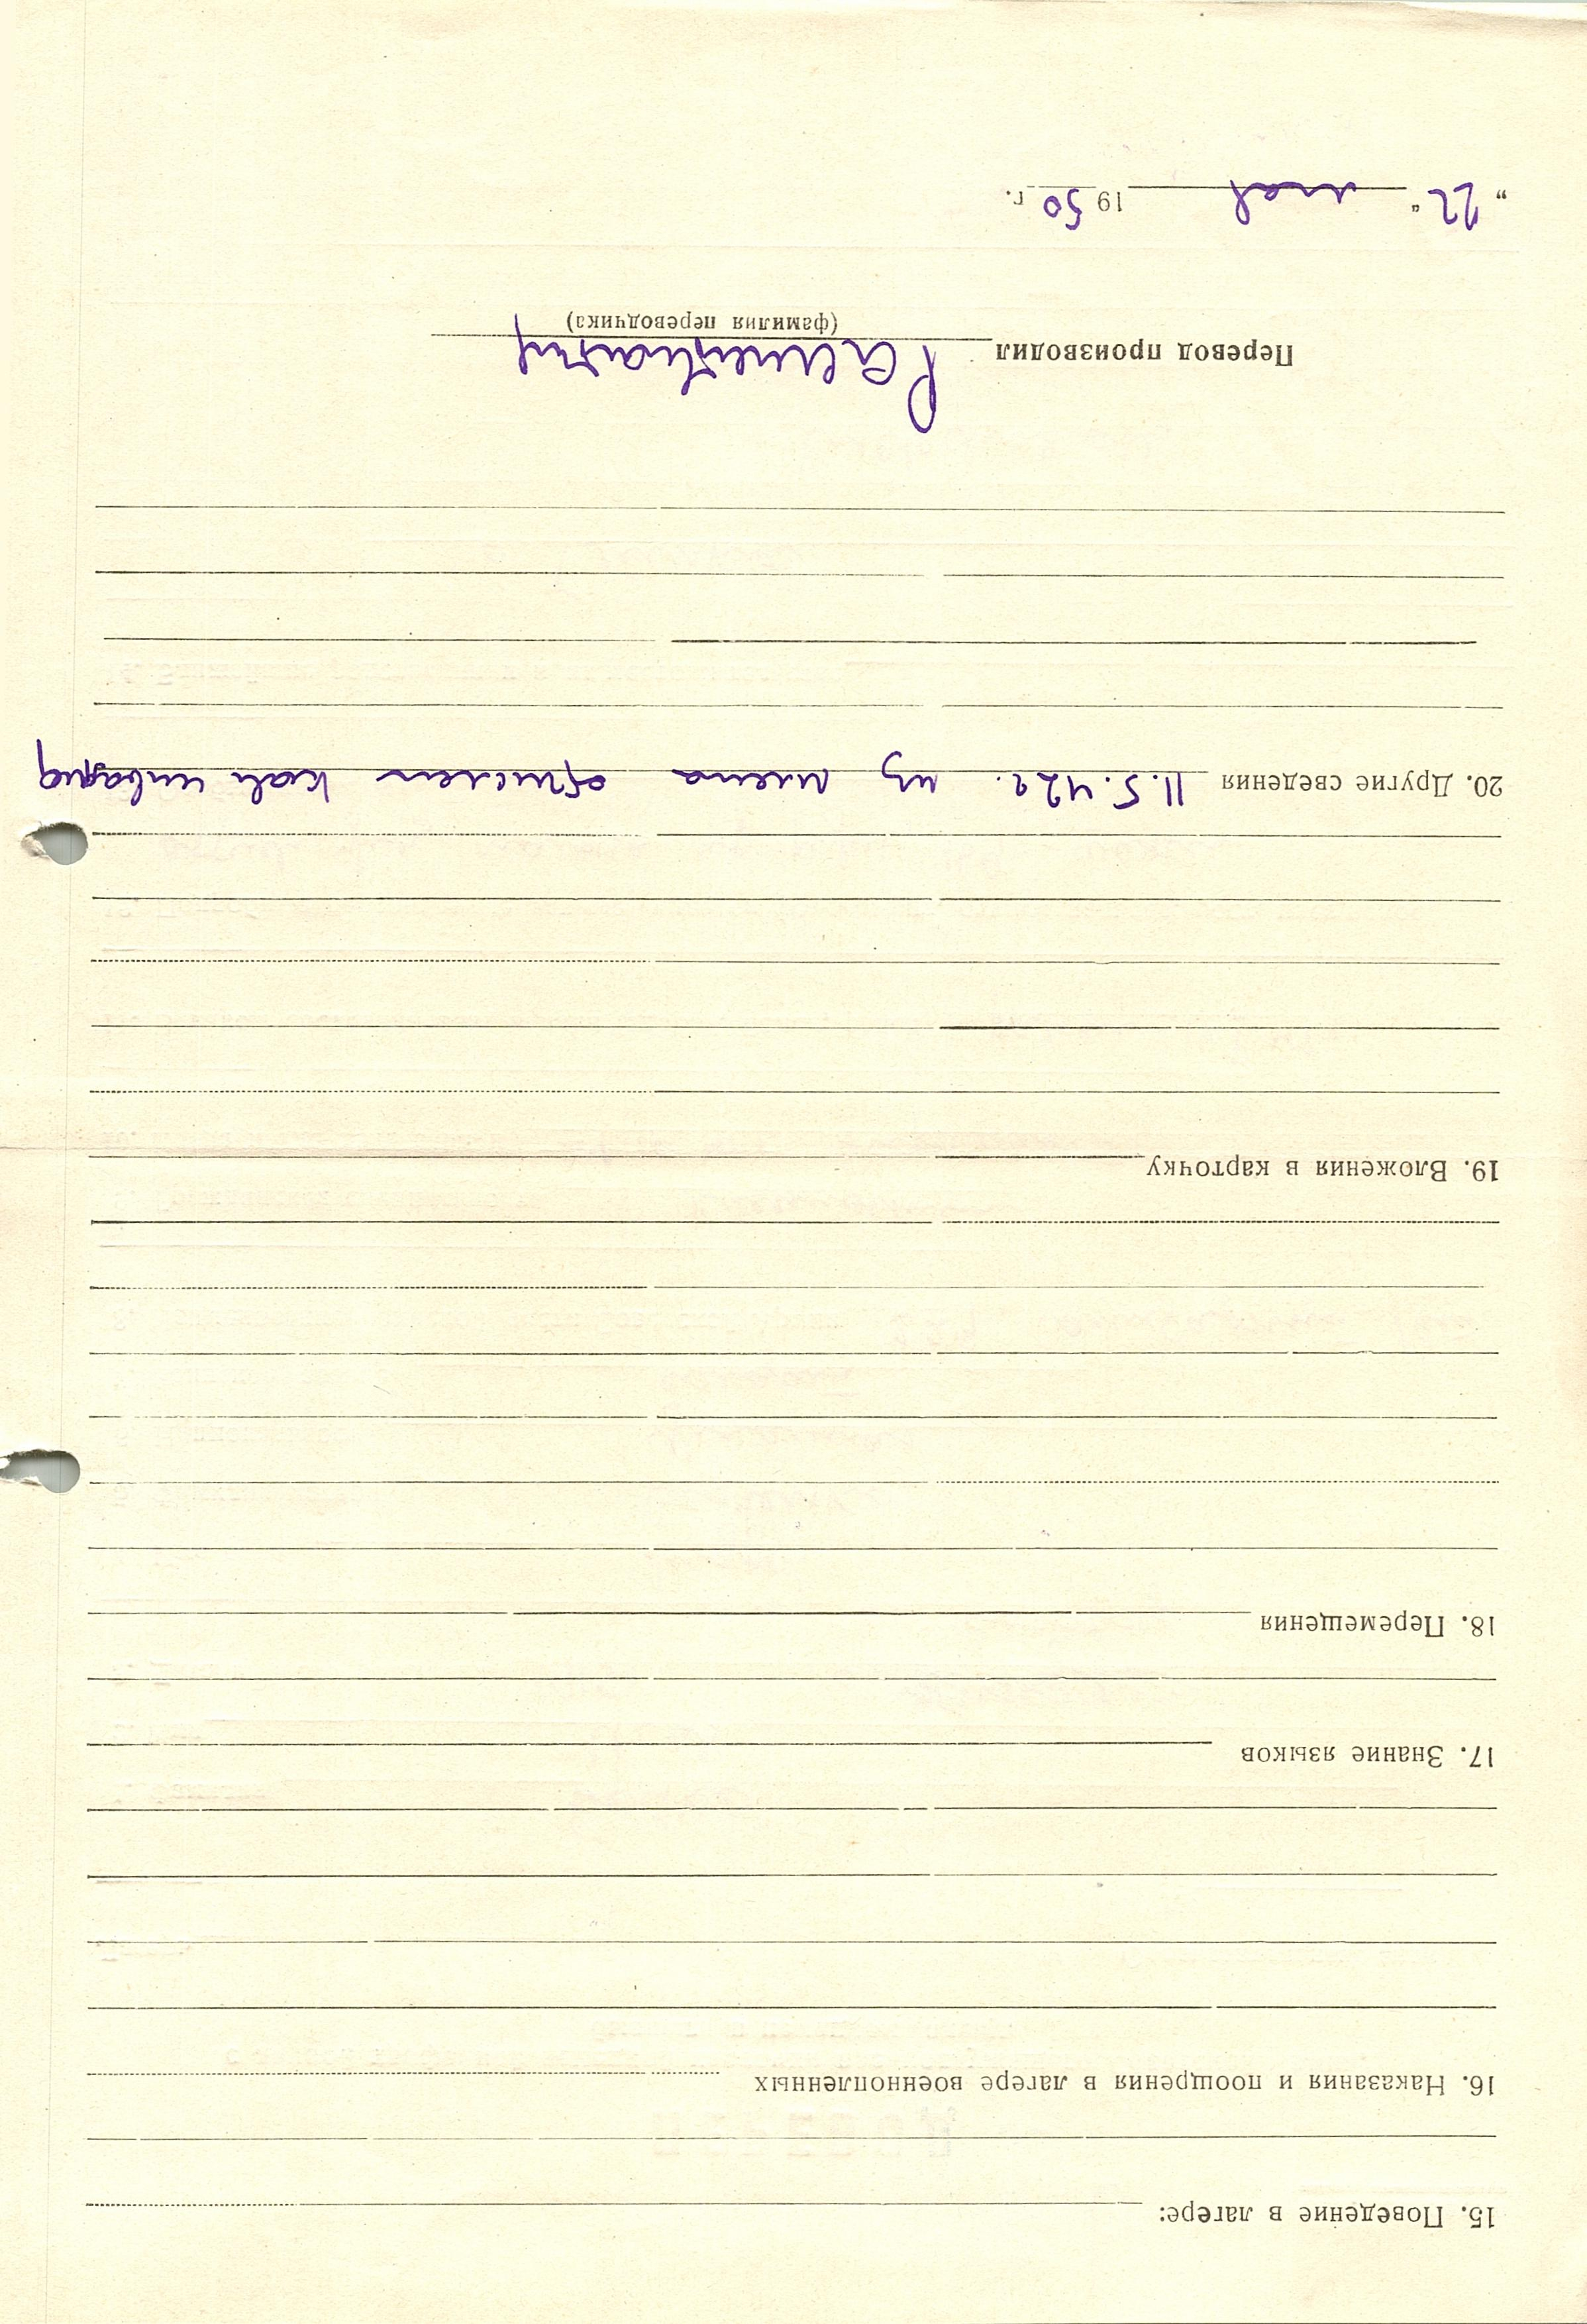 15. Поведение в лагере:
16. Наказания и поощрения в лагере военнопленных
17. Знание языков
18. Перемещения
19. Вложения в карточку
20. Другие сведения 11.5.42 г. из плена отчислен как инвалид
Перевод производил
(фамилия переводчика)
„22“ мая 1950 г.